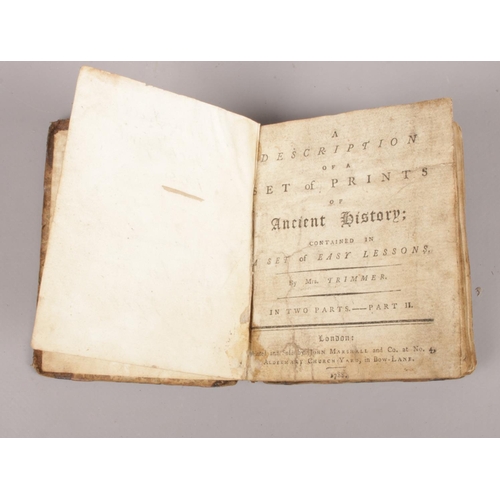 A
DESCRIPTION
OF A
SET of PRINTS
OF
Ancient History;
CONTAINED IN
A SET of EASY LESSONS.
By Mrs. TRIMMER.
IN TWO PARTS.——PART II.
London:
John Marshall and Co. at No. 4,
Church-Yard, in Bow-Lane.